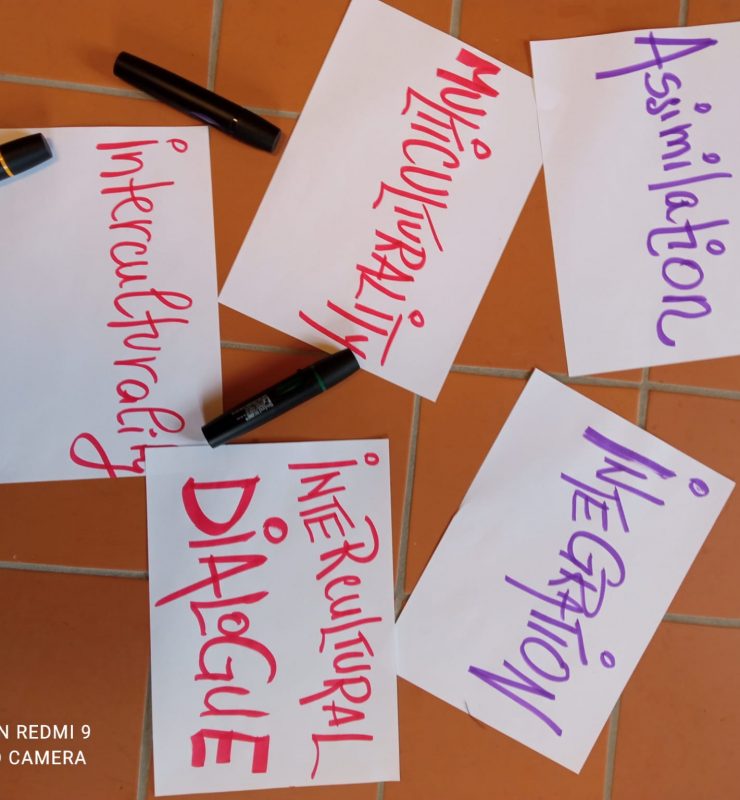 Assimilation
MULTICULTURALITY
Interculturality
INTEGRATION
INTERCULTURAL
DIALOGUE
N REDMI 9
CAMERA